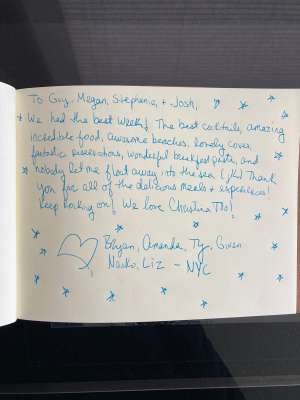 To Guy, Megan, Stephanie, + Josh,
We had the best week! The best cocktails, amazing
incredible food, awesome beaches, lovely coves,
fantastic reservations, wonderful breakfast pasta, and
nobody let me float away into the sea (jk) Thank
you for all of the delicious meals + experiences!
Keep working on! We love Christina T's!
Bryan, Amanda, Ty, Gwen
Neeko, Liz - NYC